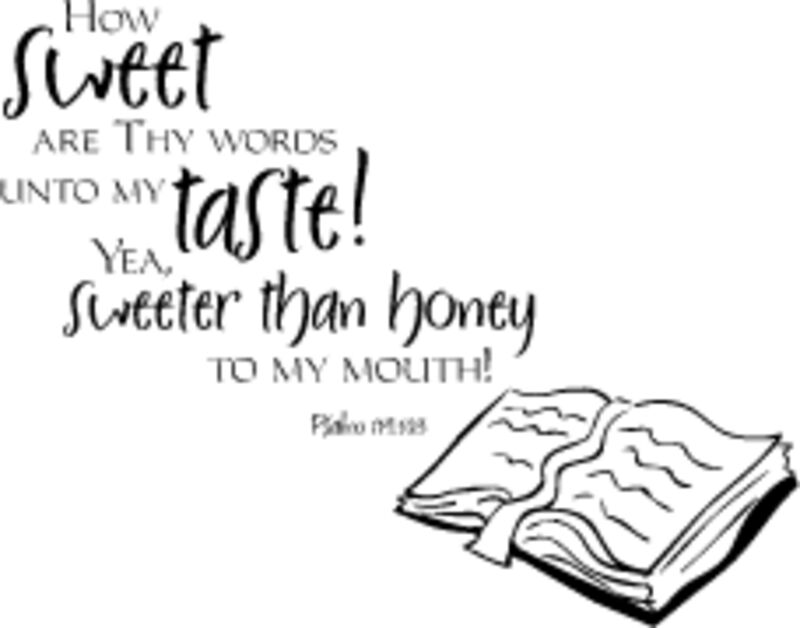 How
sweet
are Thy words
unto my taste!
Yea,
sweeter than honey
to my mouth!
Psalm 119:103